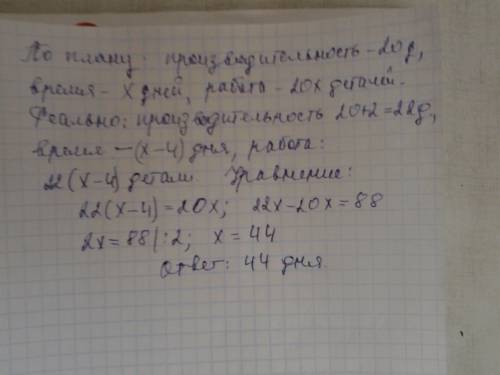 По плану: производительность - 20 д,
время - х дней, работа - 20х деталей.
Реально: производительность 20+2=22д,
время - (х-4) дня, работа:
22(х-4) детали Уравнение:
22(х-4)=20х; 22х-20х=88
2х=88|:2; х=44
Ответ: 44 дня.